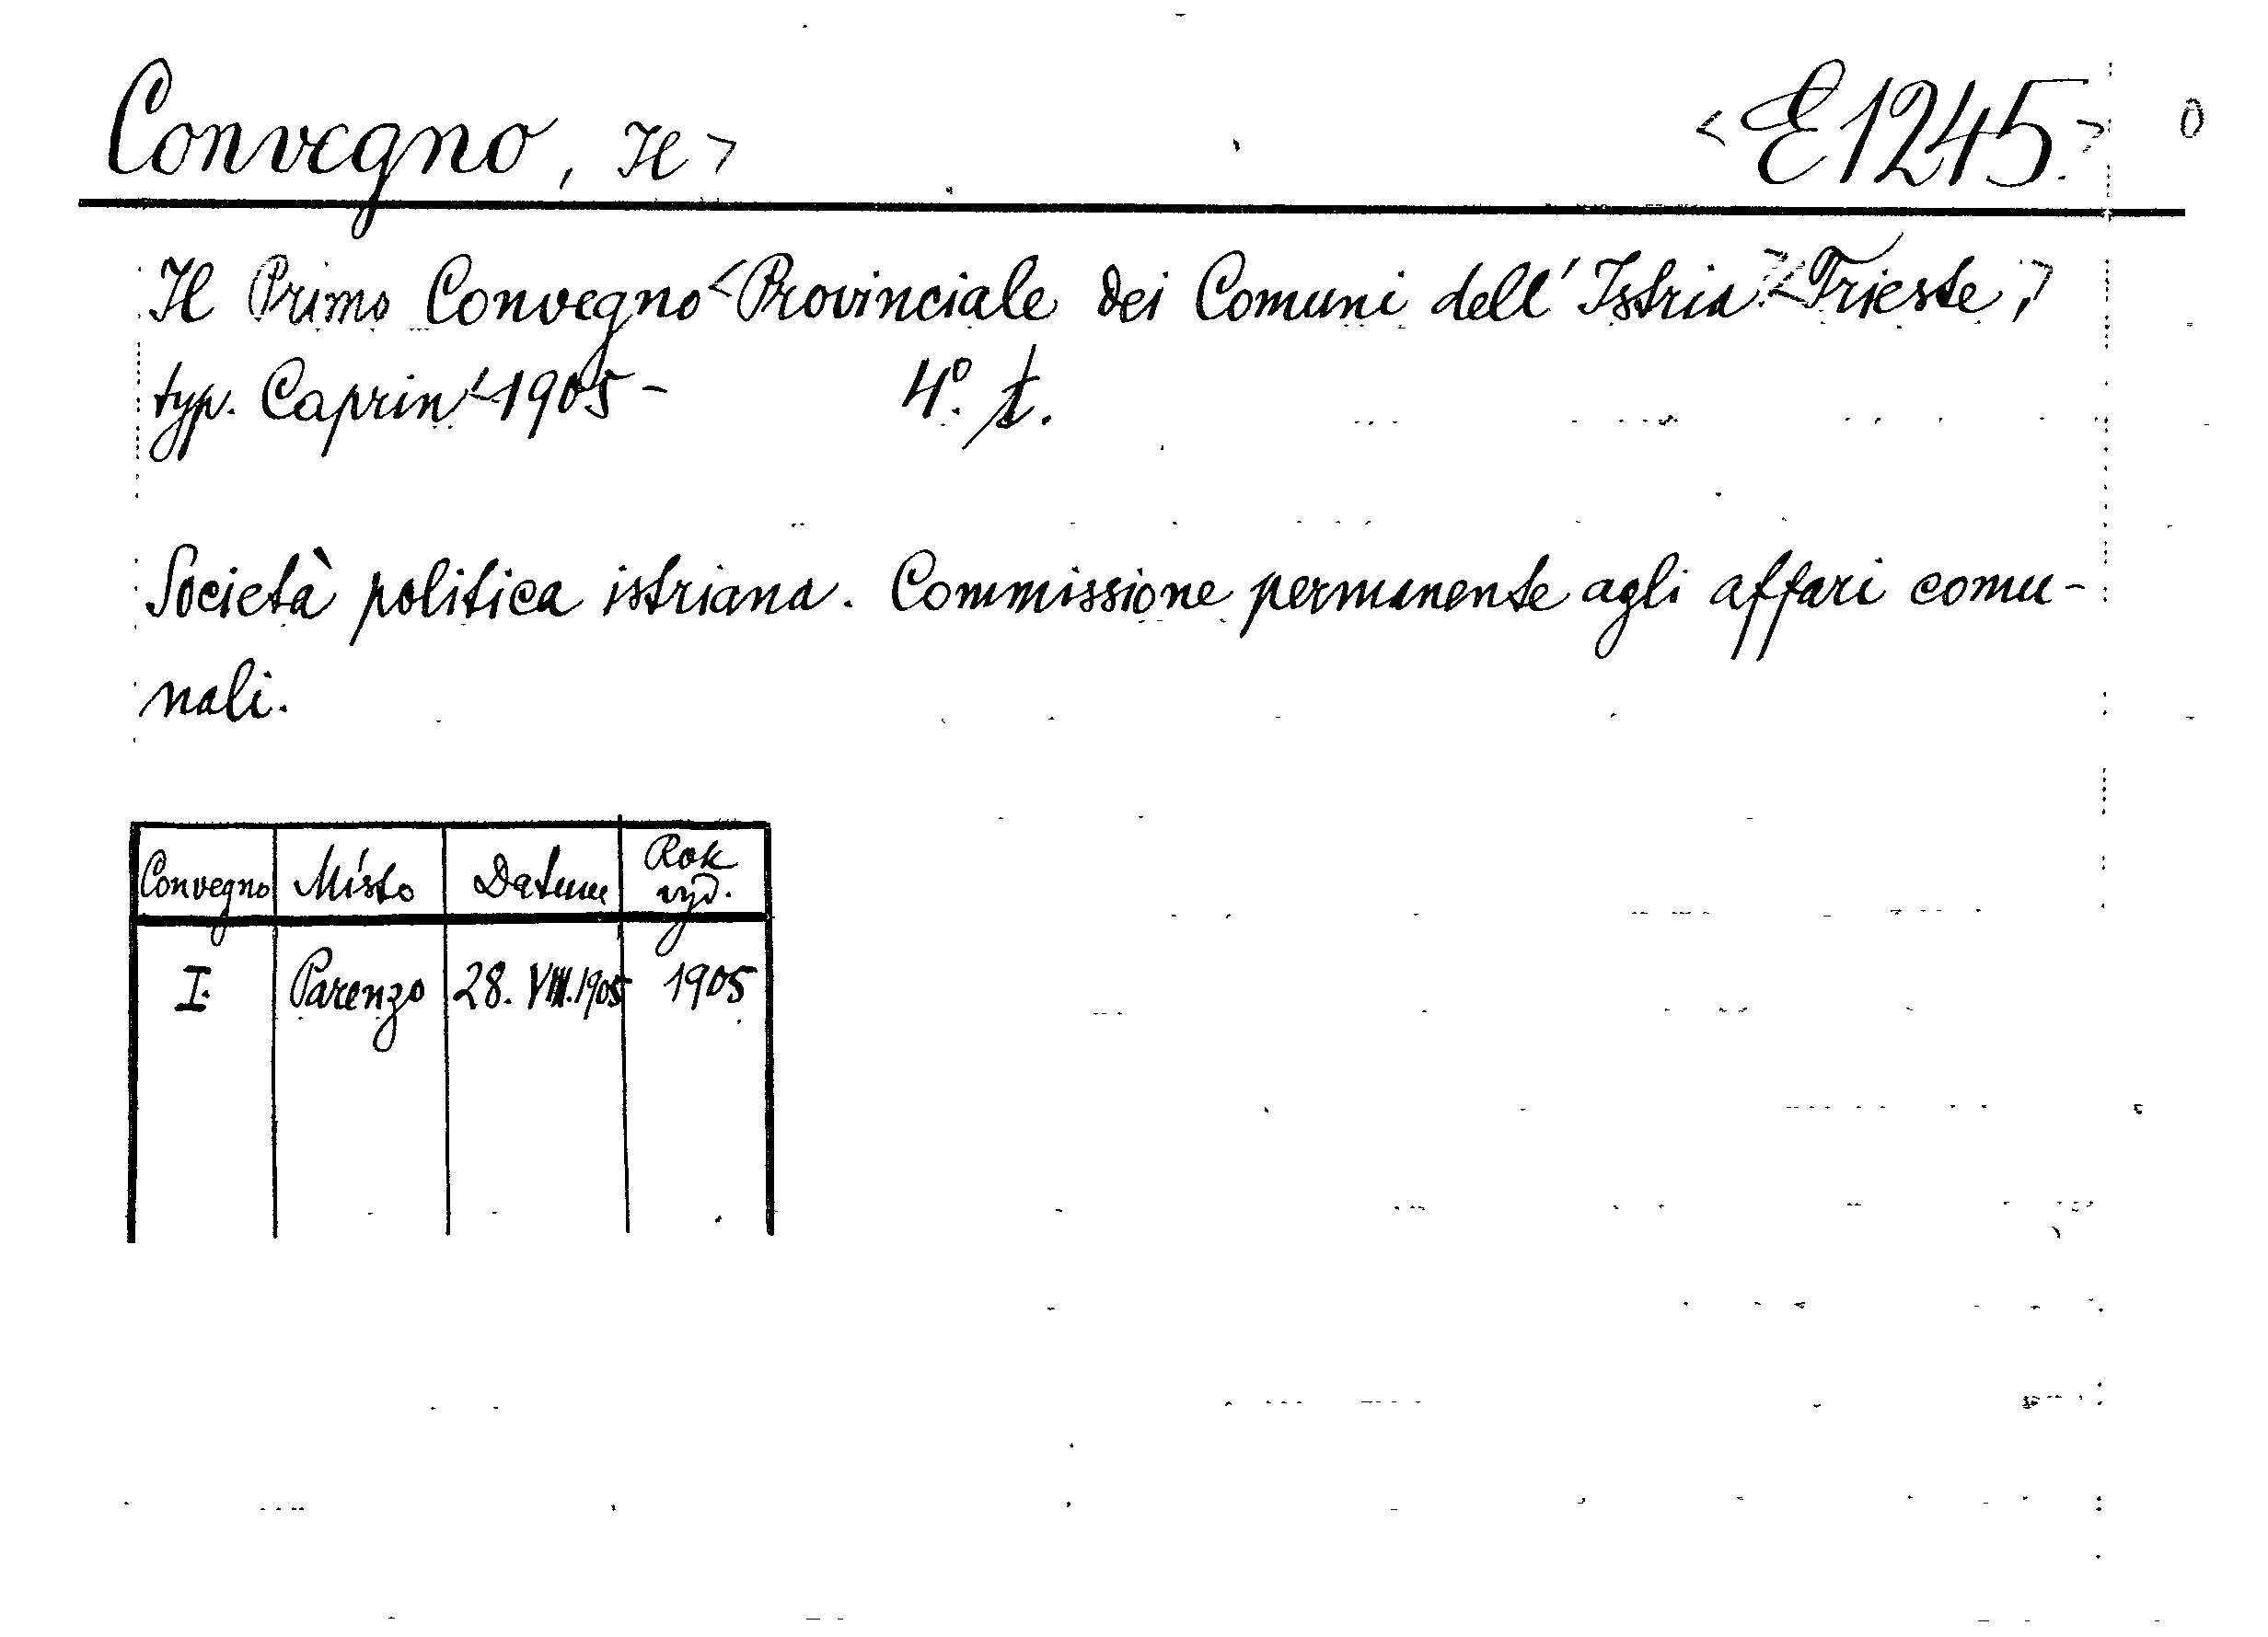 Convegno, Il> <E1245.> 0
Il Primo Convegno <Provinciale dei Comuni dell' Istria> <Trieste,>
typ. Caprin <1905- 4º. t.
Società politica istriana. Commissione permanente agli affari comu-
nali.
Convegno Místo Datum Rok vyd.
I. Parenzo 28. VIII. 1905 1905